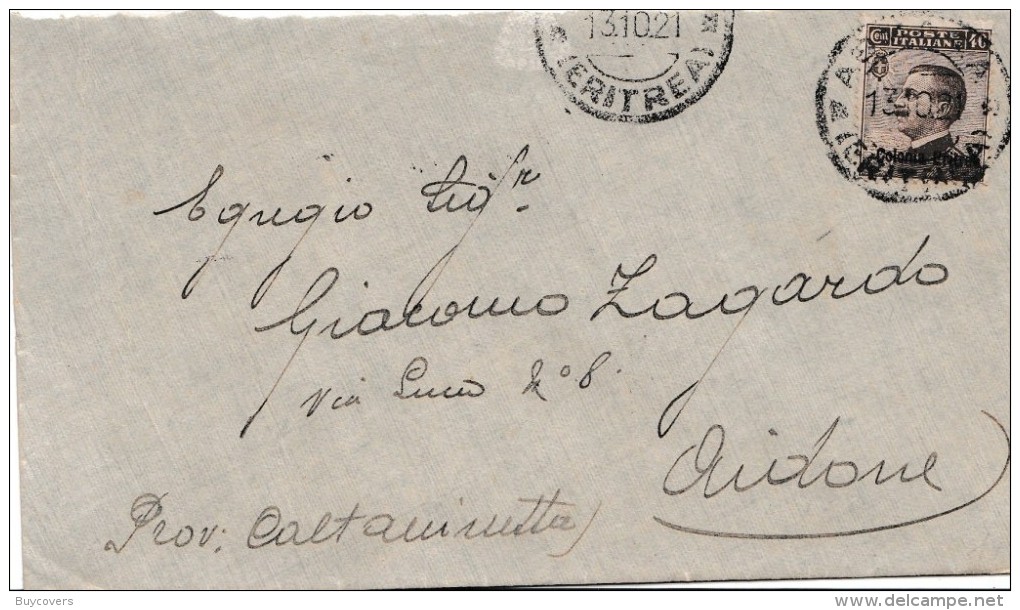 13.10.21
(ERITREA)
Cent. POSTE ITALIANE 40
13.10.21
Colonia Eritrea
Egregio Sigr
Giacomo Zagardo
Via Luca No 8.
Aidone
Prov: Caltaninetta
Buycovers
delcampe.net